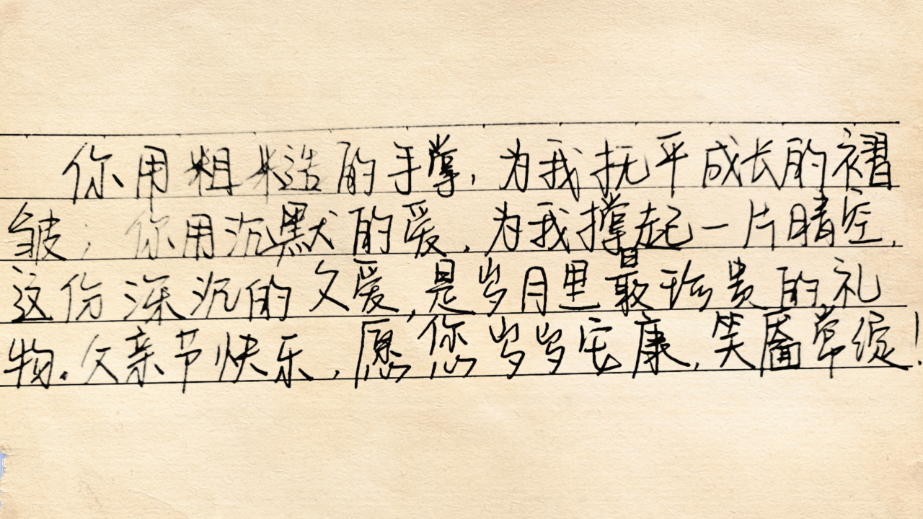 你用粗糙的手掌,为我抚平成长的褶
皱;你用沉默的爱,为我撑起一片晴空,
这份深沉的父爱,是岁月里最珍贵的礼
物。父亲节快乐,愿您岁岁安康,笑靥常绽!